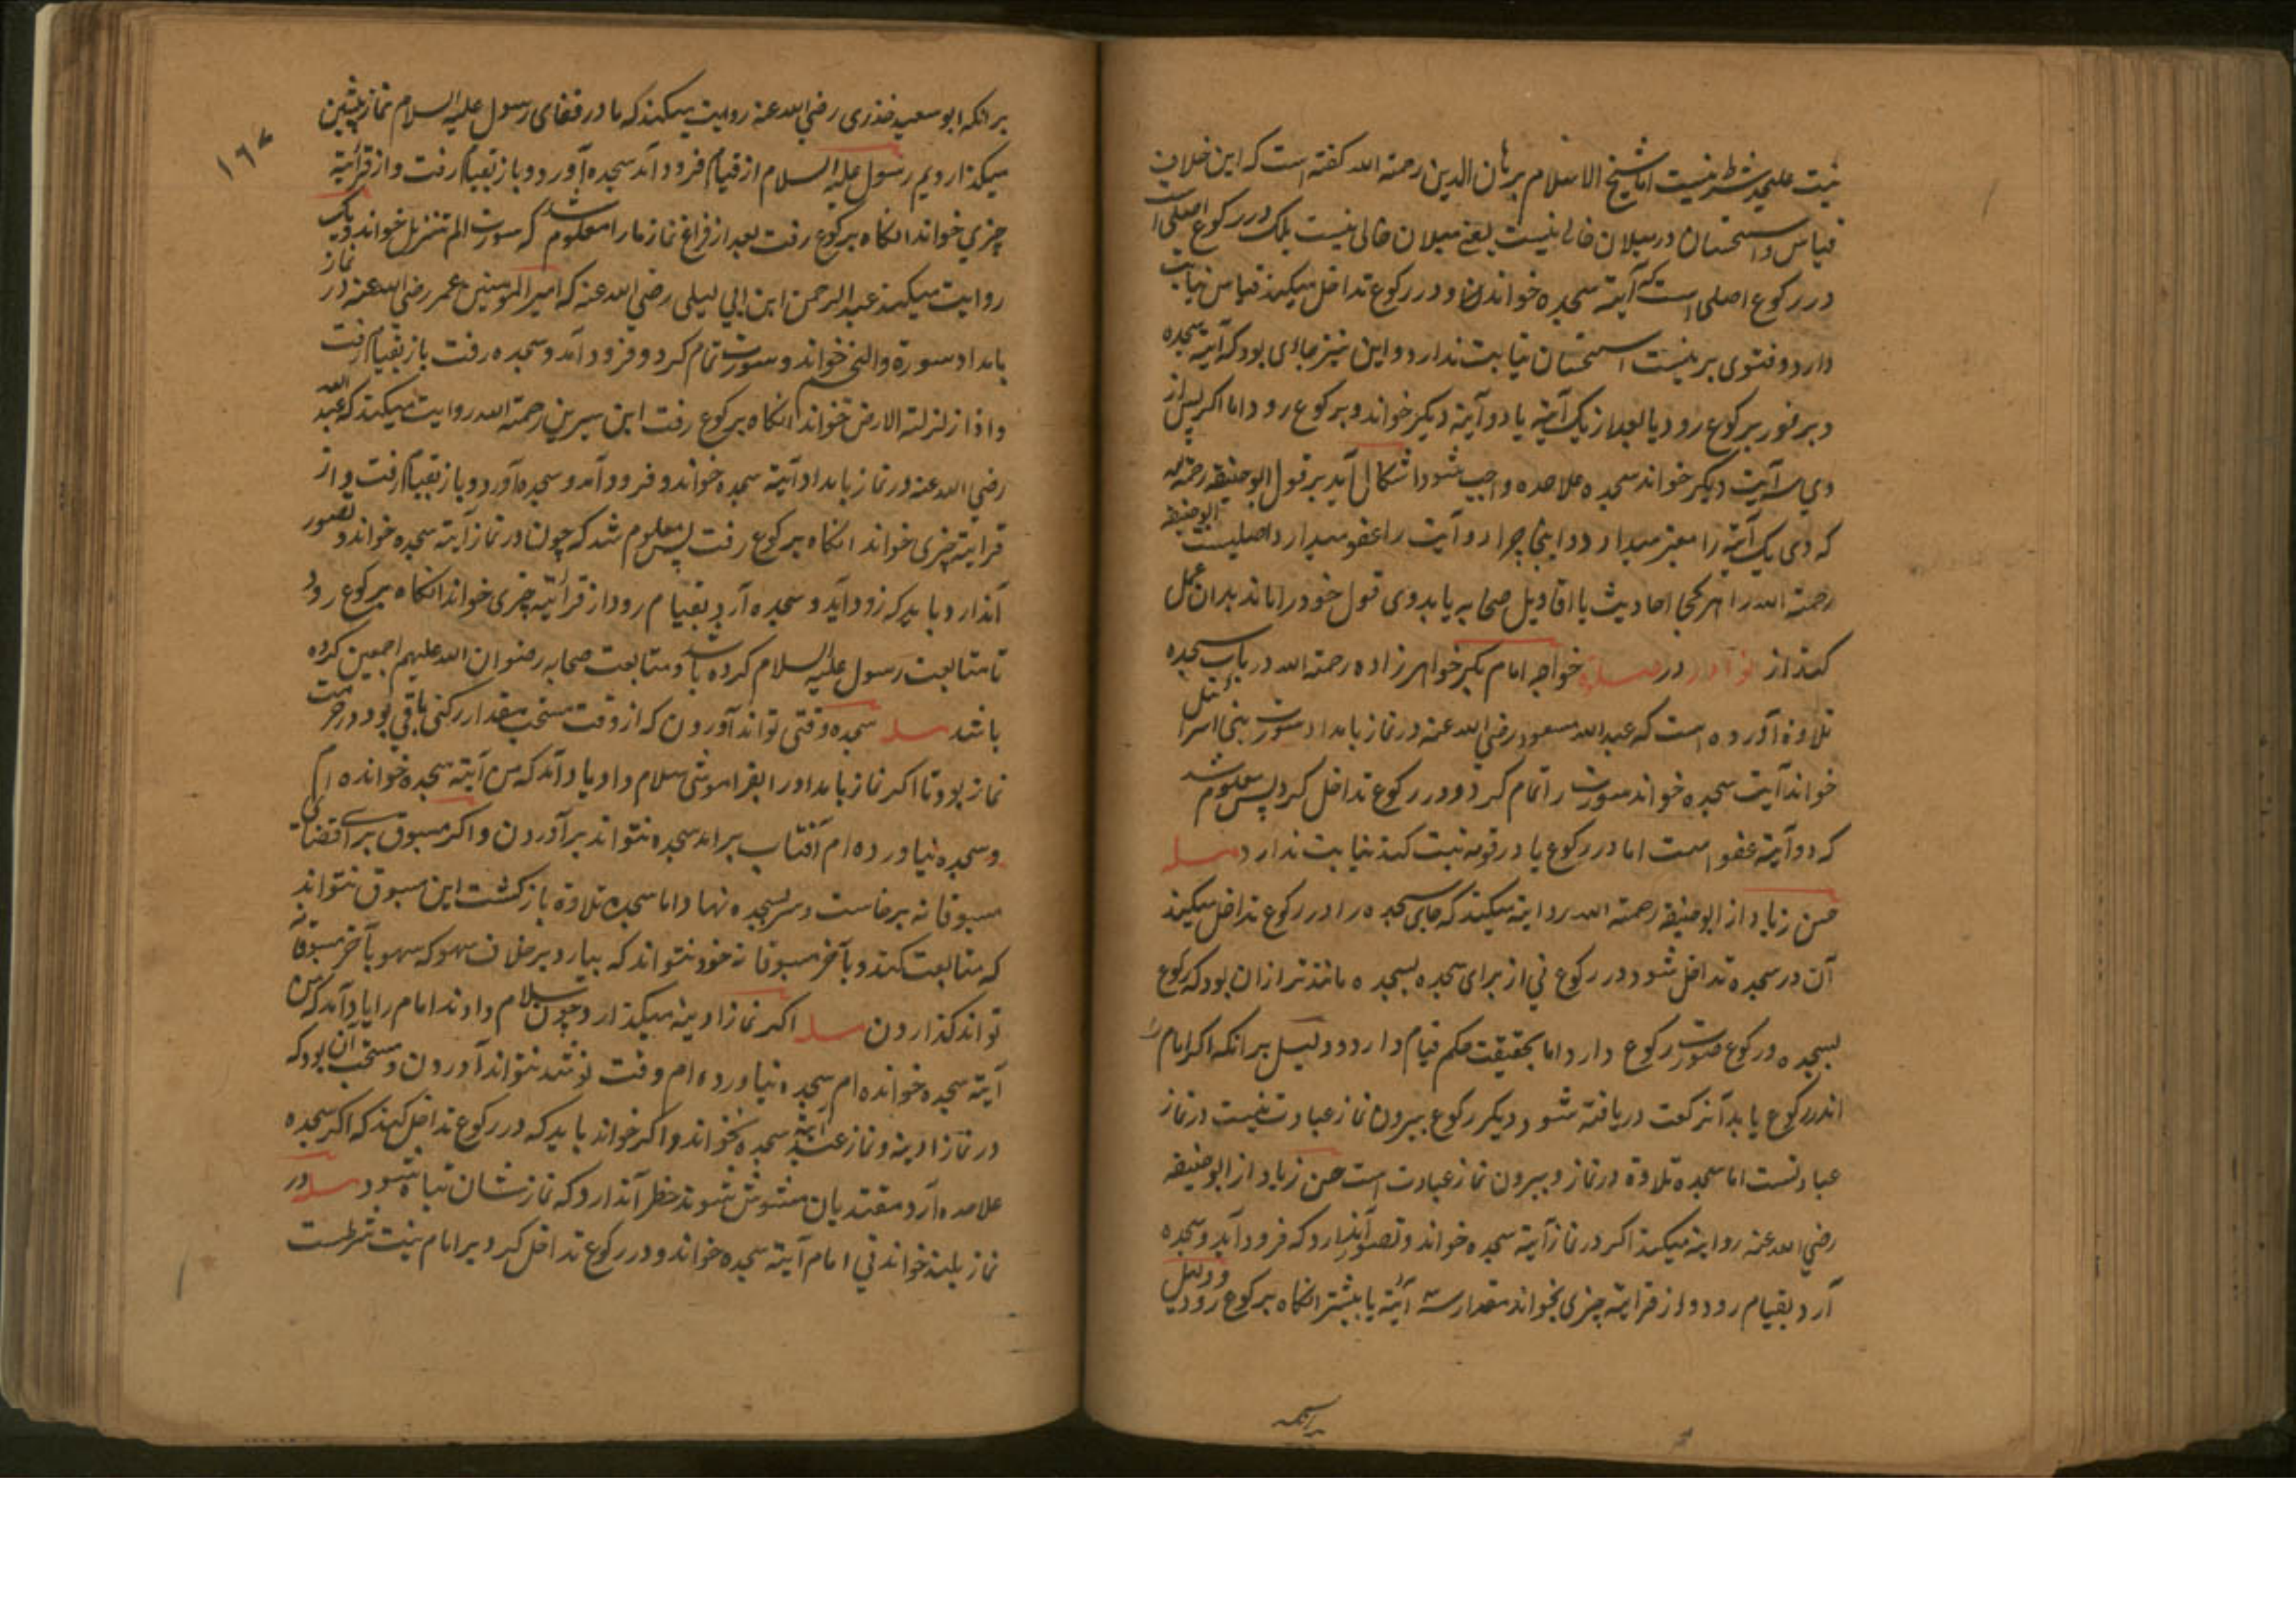 نیت علیحد شرط نیست اما شیخ الاسلام برهان الدین رحمة الله کفته است که این خلاف
قیاس و استحسان در میلان خالی نیست یعنی میلان خالی نیست بلک در رکوع اصلی است
در رکوع اصلی است که آیته سجده خواند و در رکوع تداخل میکند قیاس نیابت
دارد و فتوی بر نیست استحسان نیابت ندارد و این نیز جاءی بود که آیته سجده
و بر فور برکوع رود یا بعد از یک آیته یا دو آیته دیکر خواند و برکوع رود اما اکر پس از
وی سه آیت دیکر خواند سجده علاحده واجب شود اشکال آید بر قول ابو حنیفه رحمة الله
که وی یک آیته را معتبر میدارد و اینجا چرا دو آیت را عفو میدارد اصلیست ابو حنیفه
رحمة الله را هر کجا احادیث با اقاویل صحابه یابد وی قول خود را ماند بدان عمل
کند از نوادر در صلوة خواجه امام بکر خواهر زاده رحمة الله در باب سجده
تلاوة آورده است که عبد الله مسعود رضی الله عنه در نماز بامداد سورت بنی اسرائیل
خواند آیت سجده خواند سورت را تمام کرد و در رکوع تداخل کرد پس معلوم شد
که دو آیته عفو است اما در رکوع یا در قومه نیت کند نیابت ندارد مسله
حسن زیاد از ابو حنیفه رحمة الله روایته میکند که جای سجده را در رکوع تداخل میکند
آن در سجده تداخل شود در رکوع نی از برای سجده بسجده مانند تر از ان بود که رکوع
بسجده و رکوع صورت رکوع دارد اما بحقیقت حکم قیام دارد و دلیل برانکه اکر امام را
اندر رکوع یابد آن رکعت دریافته شود دیکر رکوع بیرون نماز عبادت نیست در نماز
عبادتست اما سجده تلاوة در نماز و بیرون نماز عبادت است حسن زیاد از ابو حنیفه
رضی الله عنه روایته میکند اکر در نماز آیته سجده خواند و تصور آندارد که فرود آید و سجده
آرد بقیام رود و از قراءته چیزی بخواند مقدار سه آیته یا بیشتر انکاه برکوع رود و دلیل
برانکه
۱۶۷
برانکه ابو سعید خذری رضی الله عنه روایت میکند که ما در قفای رسول علیه السلام نماز پیشین
میکذاردیم رسول علیه السلام از قیام فرود آمد سجده آورد و باز بقیام رفت و از قرآیته
چیزی خواند انکاه برکوع رفت بعد از فراغ نماز ما را معلوم شد که سورت الم تنزیل خواند و یک
روایت میکند عبد الرحمن ابن ابی لیلی رضی الله عنه که امیر المومنین عمر رضی الله عنه در نماز
بامداد سورة والنجم خواند و سورت تمام کرد و فرود آمد و سجده رفت باز بقیام رفت
و اذا زلزلت الارض خواند انکاه برکوع رفت ابن سیرین رحمة الله روایت میکند که عبد الله
رضی الله عنه در نماز بامداد آیته سجده خواند و فرود آمد و سجده آورد و باز بقیام رفت و از
قرایته چیزی خواند انکاه برکوع رفت پس معلوم شد که چون در نماز آیته سجده خواند و تصور
آندارد باید که زود آید و سجده آرد بقیام رود از قرائیته چیزی خواند انکاه برکوع رود
تا متابعت رسول علیه السلام کرده باشد و متابعت صحابه رضوان الله علیهم اجمعین کرده
باشد مسله سجده وقتی تواند آوردن که از وقت مستحب مقدار رکنی باقی بود در حرمت
نماز بود تا اکر نماز بامداد را بفراموشی سلام داد یاد آمد که من آیته سجده خوانده ام
و سجده نیاورده ام آفتاب براید سجده نتواند برآوردن و اکر مسبوق برای قضای
مسبوقانه برخاست و سر بسجده نهاد اما سجده تلاوة باز کشت این مسبوق نتواند
که متابعت کند و بآخر مسبوقانه خود نتواند که بیارد برخلاف سهو که سهو بآخر مسبوقانه
تواند کذاردن مسله اکر نماز ادینه میکذارد چون سلام دادند امام را یاد آمد که من
آیته سجده خوانده ام سجده نیاورده ام وقت نو شد نتواند آوردن و مستحب آن بود که
در نماز ادینه و نماز عید آیته سجده نخواند و اکر خواند باید که در رکوع تداخل کند که اکر سجده
علاحده آرد مقتدیان مشوش شوند خطر آندارد که نماز شان تباه شود مسله در
نماز بلند خواندنی امام آیته سجده خواند و در رکوع تداخل کرد بر امام نیت شرطست